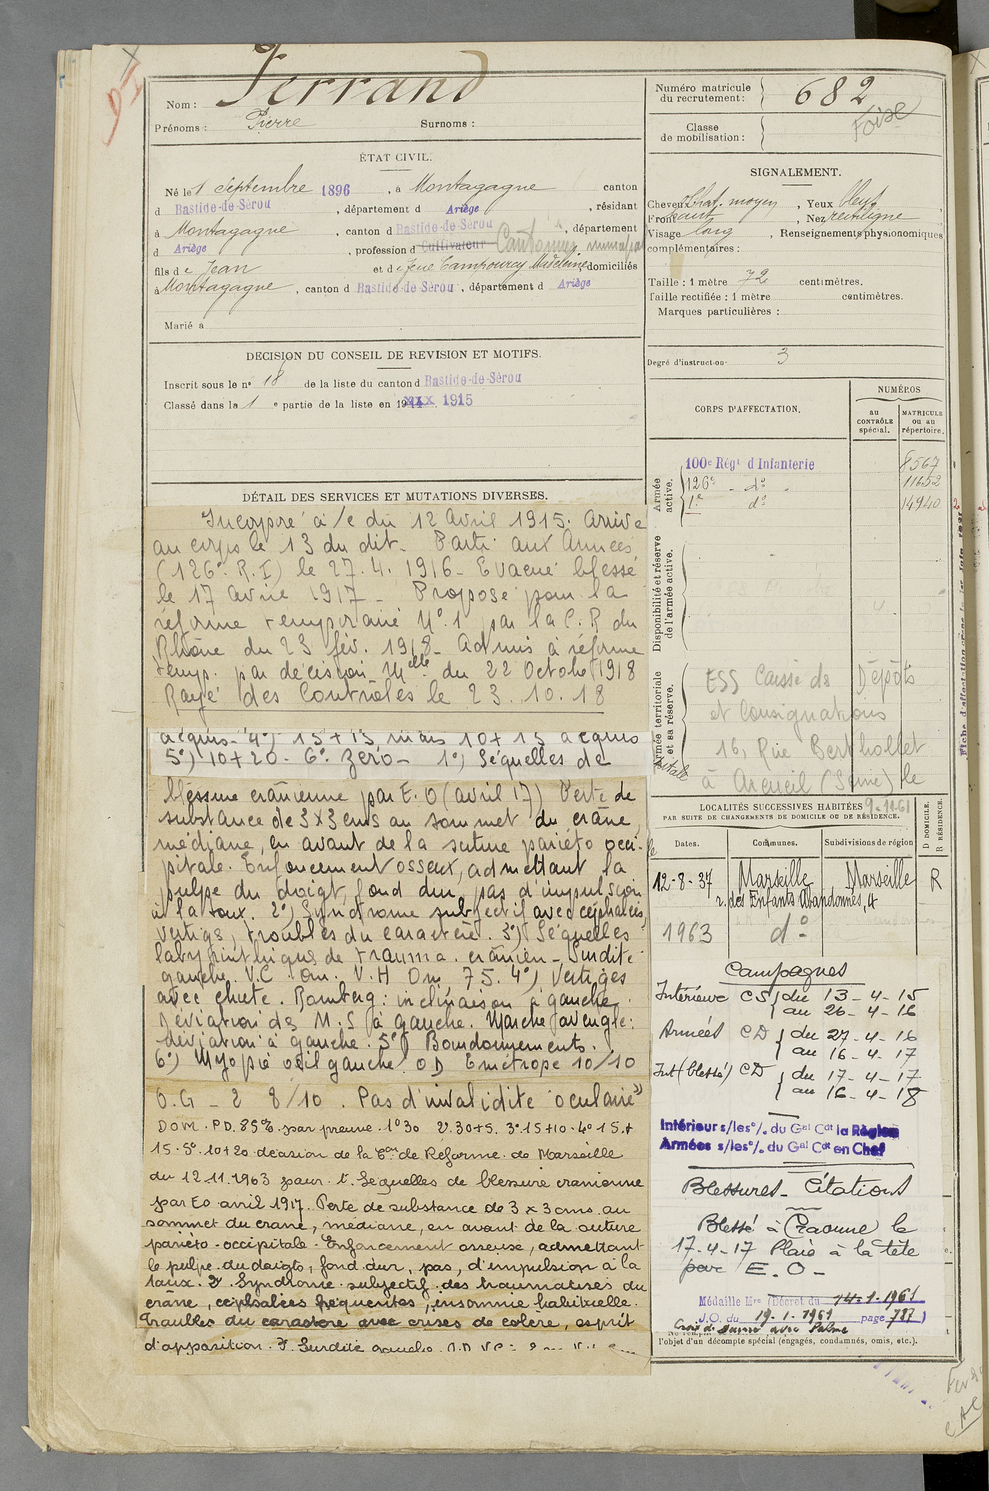 Nom : Ferrand
Prénoms : Pierre Surnoms :
Numéro matricule du recrutement : 682
Classe de mobilisation :
Foix
ÉTAT CIVIL.
Né le 1 Septembre 1896, à Montagagne canton
d Bastide-de-Sérou, département d Ariège, résidant
à Montagagne, canton d Bastide-de-Sérou, département
d Ariège, profession d Cultivateur Cantonnier municipal
fils de Jean et de feue Campourcy Madeleine, domiciliés
à Montagagne, canton d Bastide-de-Sérou, département d Ariège
Marié à
SIGNALEMENT.
Cheveux chat. moyen, Yeux bleus
Front haut, Nez rectiligne
Visage long, Renseignements physionomiques
complémentaires :
Taille : 1 mètre 72 centimètres.
Taille rectifiée : 1 mètre centimètres.
Marques particulières :
Degré d'instruction : 3
DECISION DU CONSEIL DE REVISION ET MOTIFS.
Inscrit sous le n° 18 de la liste du canton d Bastide-de-Sérou
Classé dans la 1e partie de la liste en 19 1915
DÉTAIL DES SERVICES ET MUTATIONS DIVERSES.
Incorporé à /c du 12 Avril 1915. Arrivé
au corps le 13 du dit. Parti aux Armées
(126e R.I) le 27.4.1916 - Evacué blessé
le 17 avril 1917 - Proposé pour la
réforme temporaire N°1 par la C.R du
Rhône du 23 fév. 1918 - Admis à réforme
temp. par décision Mlle du 22 Octobre 1918
Rayé des Contrôles le 23.10.18
acquis - 4°) 15+15 mais 10+15 acquis
5°) 10+20 - 6° Zéro - 1°) Séquelles de
blessure crânienne par E.O (avril 17) Perte de
substance de 3x3 cms au sommet du crâne,
médiane, en avant de la suture pariéto occi-
pitale. Enfoncement osseux, admettant la
pulpe du doigt, fond dur, pas d'impulsion
à la toux. 2°) Syndrome subjectif avec céphalées,
vertiges, troubles du caractère. 3°) Séquelles
labyrinthiques de trauma. crânien - Surdité
gauche V.C Om. V.H Om, 75. 4°) Vertiges
avec chute. Romberg : inclinaison à gauche.
Déviation des M.S à gauche. Marche aveugle :
déviation à gauche. 5°) Bourdonnements.
6°) Myopie oeil gauche OD Emétrope 10/10
O.G - 2 8/10. Pas d'invalidité oculaire"
Dom. P.D. 85% par preuve. 1°30 2°.30+5. 3°.15+10. 4° 15.+
15. 5° 10+20 décision de la Con de Réforme de Marseille
du 12.11.1963 pour 1. Séquelles de blessure cranienne
par E.O avril 1917. Perte de substance de 3 x 3 cms au
sommet du crane, médiane, en avant de la suture
pariéto-occipitale. Enfoncement osseux, admettant
le pulpe du doigts, fond dur, pas, d'impulsion à la
toux. 2° Syndrome subjectif des traumatisés du
crâne, céphalées fréquentes, insomnie habituelle.
Troubles du caractère avec crises de colère, esprit
d'apparition. 3. Surdité gauche. O.D V.C :
CORPS D'AFFECTATION.
NUMÉROS
au CONTRÔLE spécial.
MATRICULE ou au répertoire.
Armée active.
100e Régt d'Infanterie 8567
126e - d° - 11652
1er d° 14940
Disponibilité et réserve de l'armée active.
Armée territoriale et sa réserve.
ESS Caisse des Dépôts
et Consignations
16, Rue Berthollet
à Arcueil (Seine) le
9-11-61
LOCALITÉS SUCCESSIVES HABITÉES
PAR SUITE DE CHANGEMENTS DE DOMICILE OU DE RÉSIDENCE.
Dates. Communes. Subdivisions de région D DOMICILE. R RÉSIDENCE.
12-8-37 Marseille Marseille R
r. des Enfants Abandonnés, 4
1963 d°
Campagnes
Intérieur CS du 13-4-15
au 26-4-16
Armées CD du 27-4-16
au 16-4-17
Int (blessé) CD du 17-4-17
au 16-4-18
Intérieur s/les o/. du Gal Cdt la Région
Armées s/les o/. du Gal Cdt en Chef
Blessures - Citations
Blessé à Craonne le
17-4-17 Plaie à la tête
par E.O -
Médaille Mre (Décret du 14-1-1961
J.O. du 19-1-1961 page 787)
Croix de Guerre avec Palme
l'objet d'un décompte spécial (engagés, condamnés, omis, etc.).